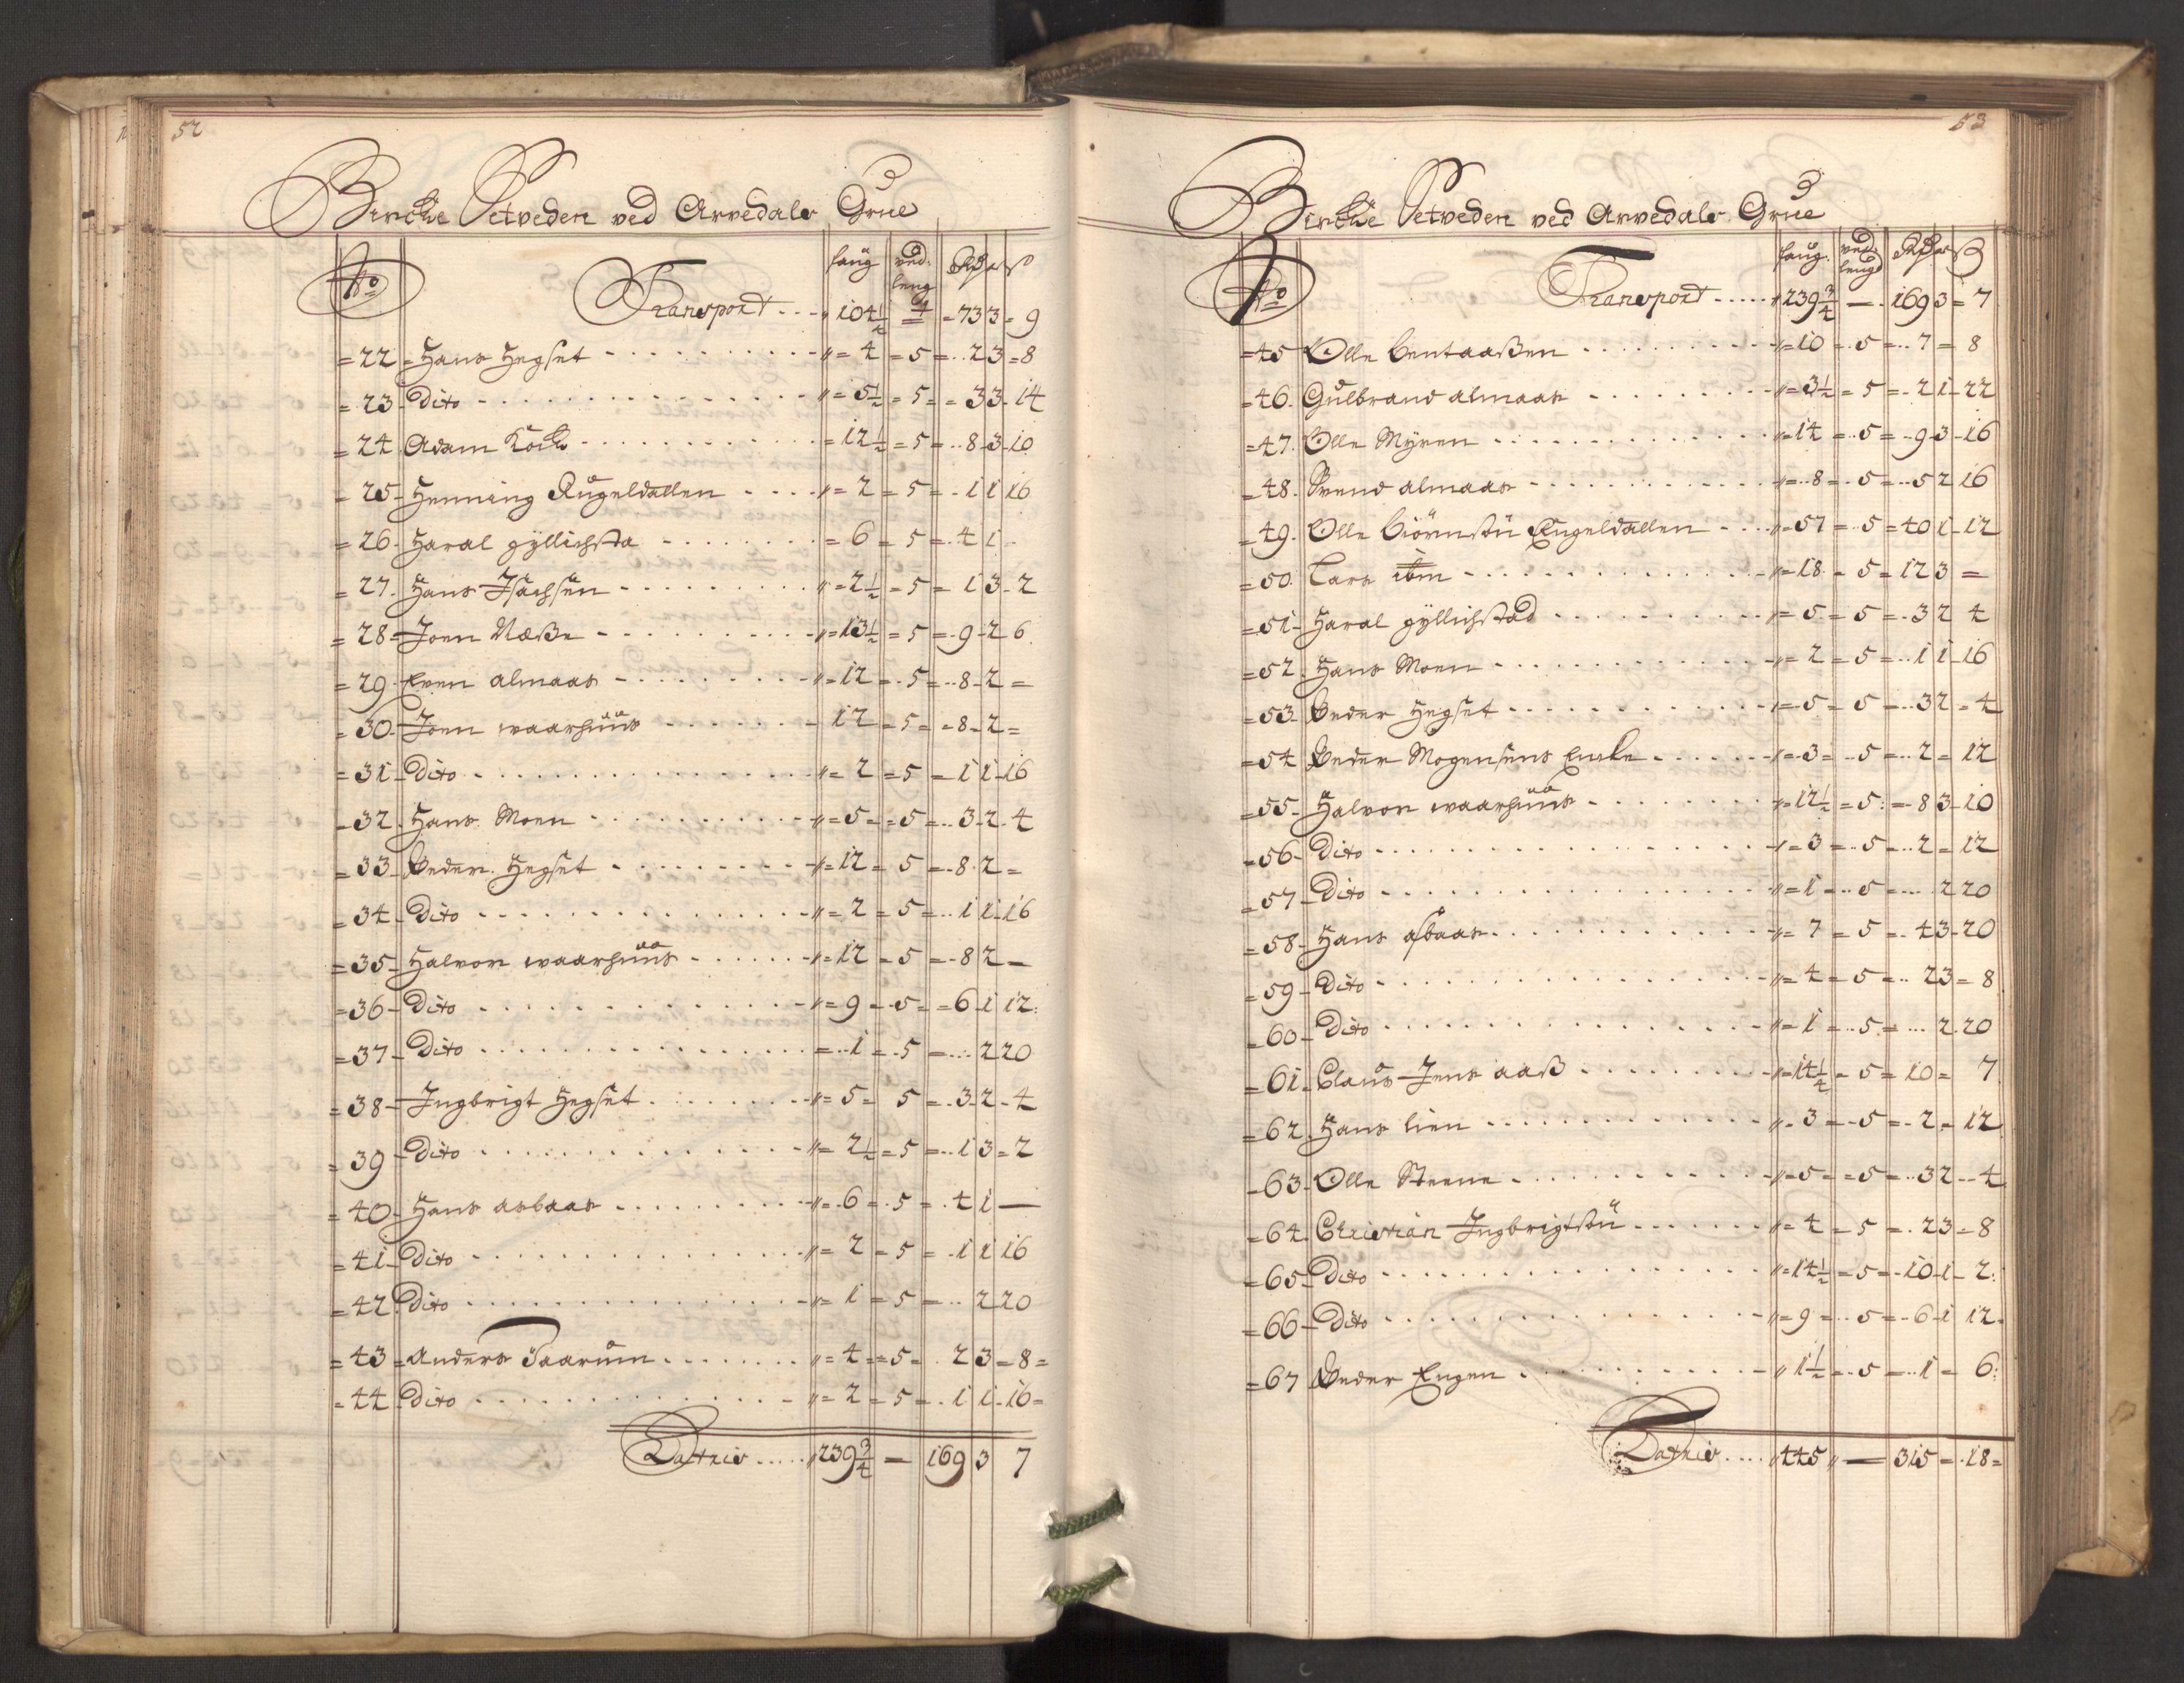 52
Bircke Setveden ved Arvedals Grue
No faug ved: leng Rdr
Transport 104½ 4 73 3 9
22 Hans Hegset 4 5 2 3 8
23 Dito 5½ 5 3 3 14
24 Adam Kock 12½ 5 8 3 10
25 Henning Rugeldallen 2 5 1 1 16
26 Haral gÿllichsta 6 5 4 1
27 Hans Isachsen 2½ 5 1 3 2
28 Joen Næsse 13½ 5 9 2 6
29 Even almaas 12 5 8 2
30 Joen waarhuus 12 5 8 2
31 Dito 2 5 1 1 16
32 Hans Moen 5 5 3 2 4
33 Peder Hegset 12 5 8 2
34 Dito 2 5 1 1 16
35 Halvor waarhuus 12 5 8 2
36 Dito 9 5 6 1 12
37 Dito 1 5 2 20
38 Ingbrigt Hegset 5 5 3 2 4
39 Dito 2½ 5 1 3 2
40 Hans asbaas 6 5 4 1
41 Dito 2 5 1 1 16
42 Dito 1 5 2 20
43 Anders Taarum 4 5 2 3 8
44 Dito 2 5 1 1 16
Lattris 239¾ 169 3 7
53
Bircke Setveden ved Arvedals Grue
No faug: ved: lengd Rdr ß
Transport 239¾ 169 3 7
45 Olle bentaassen 10 5 7 8
46 Gulbrand almaas 3½ 5 2 1 22
47 Olle Mÿren 14 5 9 3 16
48 Svend almaas 8 5 5 2 16
49 Olle biörnsön Rugeldallen 57 5 40 1 12
50 Lars ibm 18 5 12 3
51 Haral gÿllichstad 5 5 3 2 4
52 Hans Moen 2 5 1 1 16
53 Peder Hegset 5 5 3 2 4
54 Peder Mogensens Encke 3 5 2 12
55 Halvor waarhuus 12½ 5 8 3 10
56 Dito 3 5 2 12
57 Dito 1 5 2 20
58 Hans asbaas 7 5 4 3 20
59 Dito 4 5 2 3 8
60 Dito 1 5 2 20
61 Claus Jens aass 14¼ 5 10 7
62 Hans lien 3 5 2 12
63 Olle Steene 5 5 3 2 4
64 Christian Ingbrigtsön 4 5 2 3 8
65 Dito 14½ 5 10 1 2
66 Dito 9 5 6 1 12
67 Peder Engen 1½ 5 1 6
Lattris 445 315 18